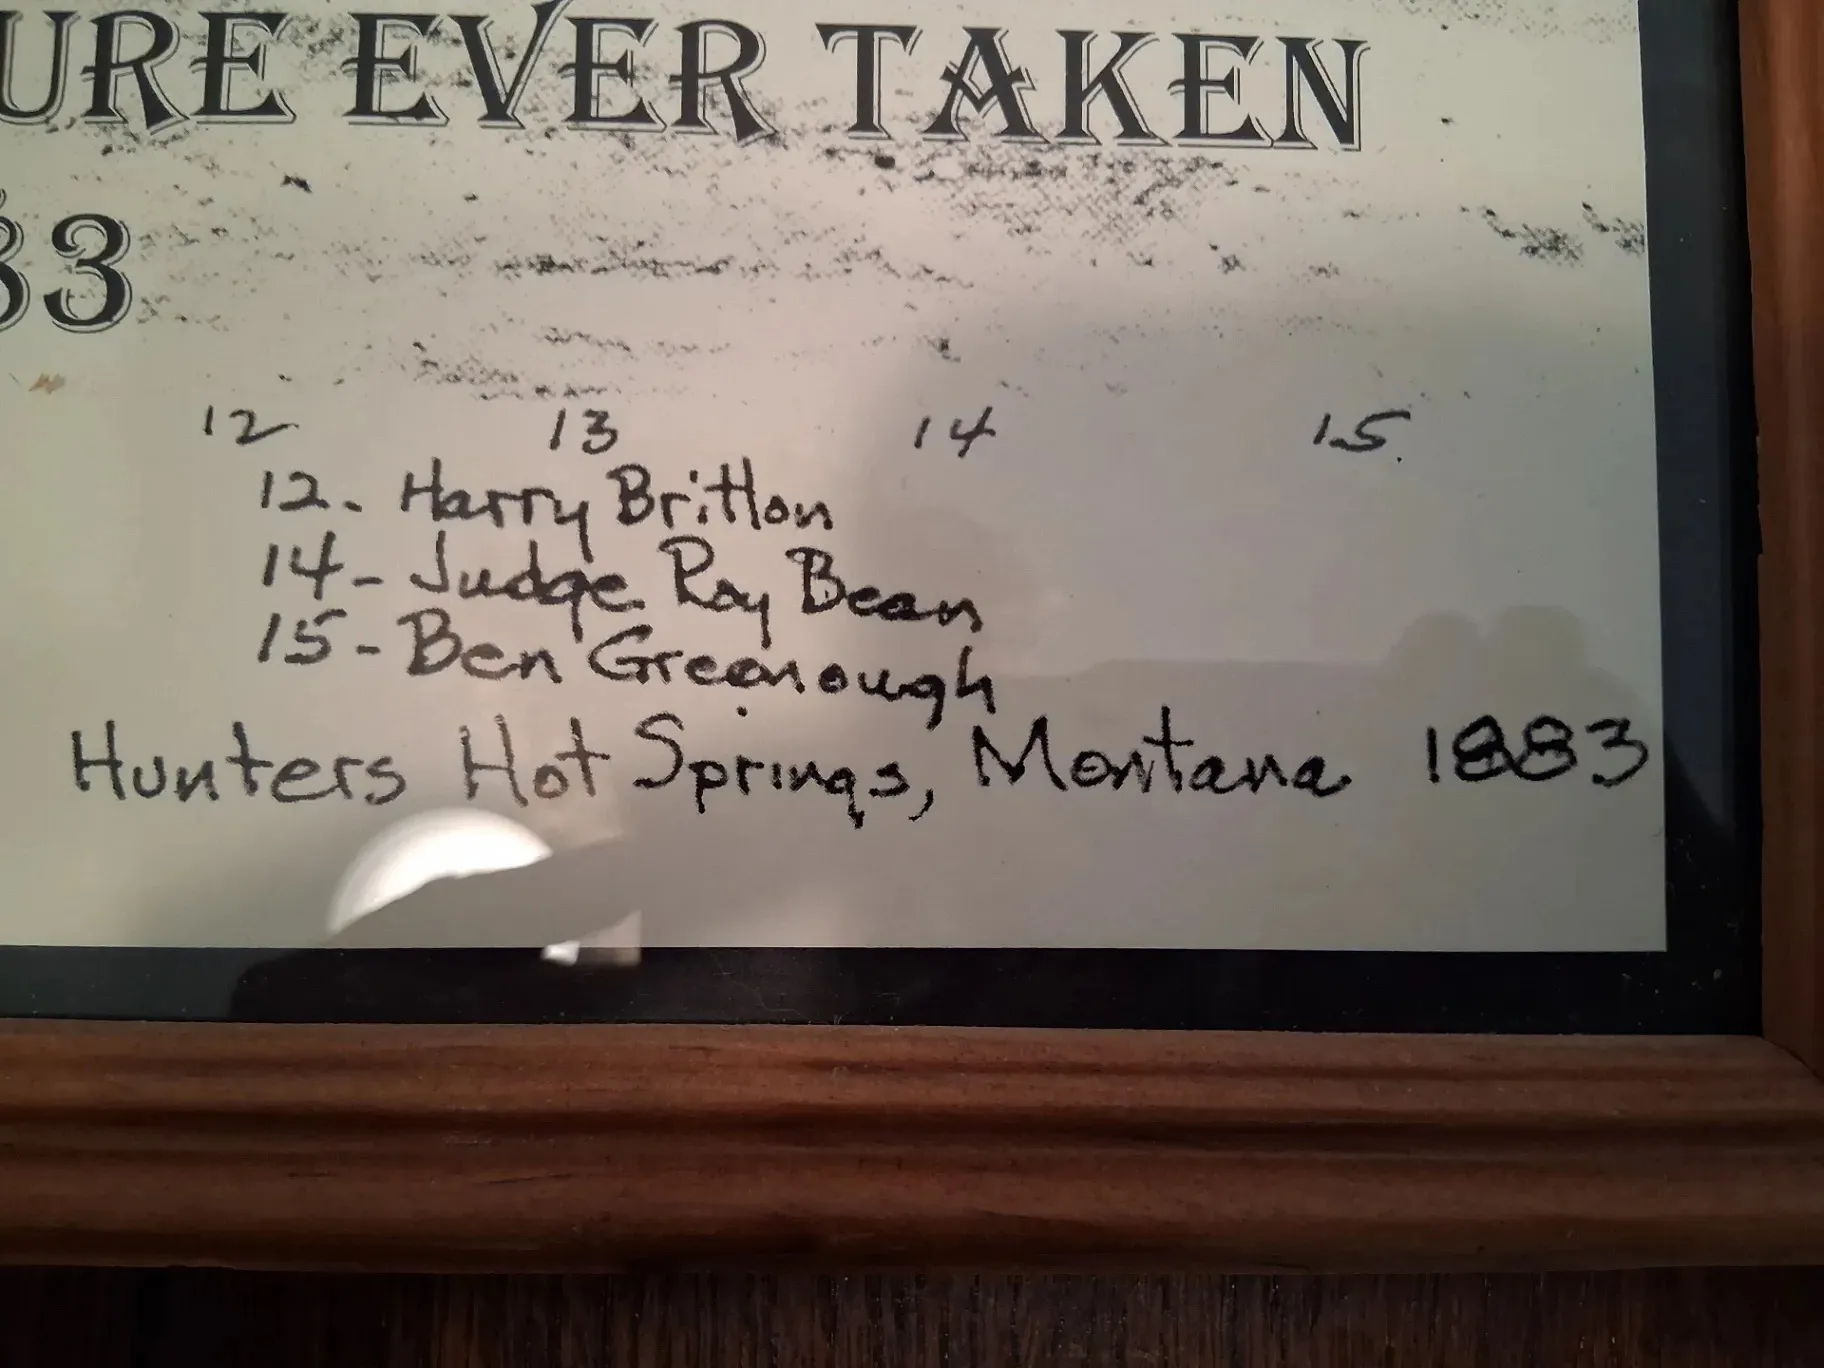 URE EVER TAKEN
83
12 13 14 15
12- Harry Britton
14- Judge Roy Bean
15- Ben Greenough
Hunters Hot Springs, Montana 1883